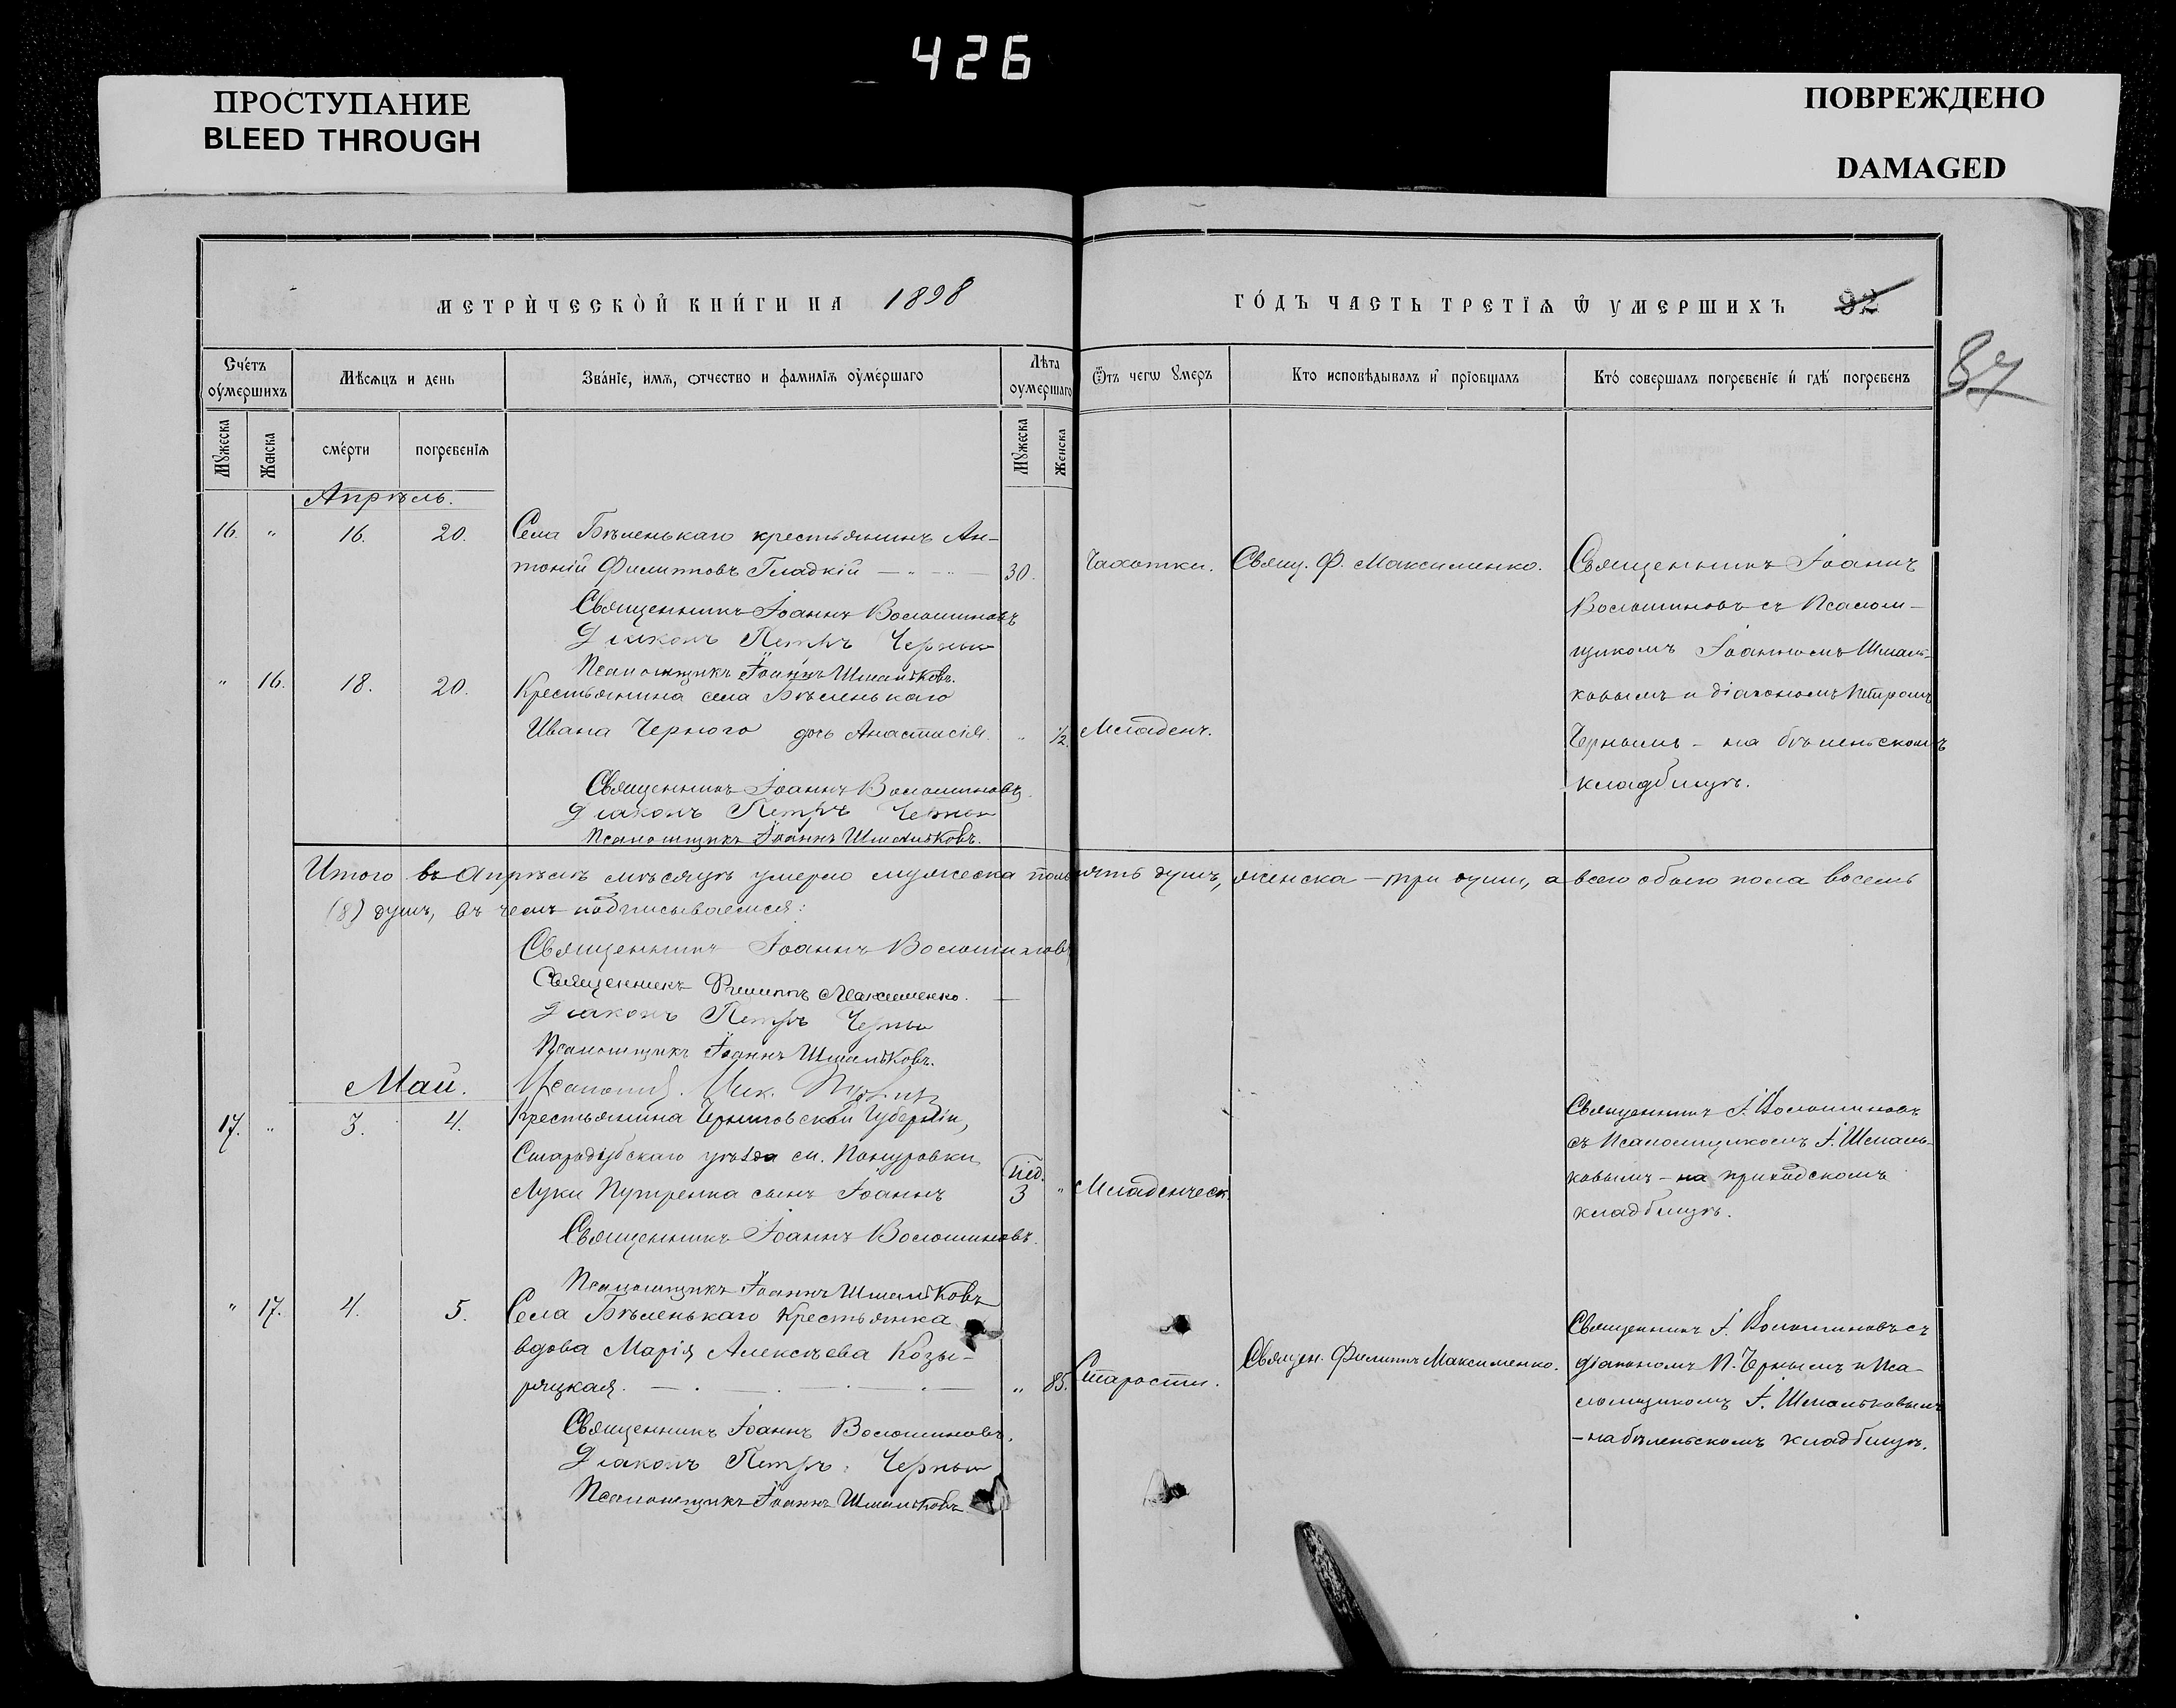 426
ПРОСТУПАНИЕ
BLEED THROUGH
ПОВРЕЖДЕНО
DAMAGED
МЕТРИЧЕСКОЙ КНИГИ НА 1898
ГОДЪ ЧАСТЬ ТРЕТІЯ Ѿ УМЕРШИХЪ 92
87
Счетъ оумершихъ
Мѣсяцъ и день
Званіе, имя, отчество и фамилія оумершаго
Лѣта оумершаго
Ѿтъ чегѡ умеръ
Кто исповѣдывалъ и пріобщалъ
Кто совершалъ погребеніе и гдѣ погребенъ
Мужеска
Женска
смерти
погребенія
Мужеска
Женска
Апрѣль.
16. " 16. 20. Села Бѣленькаго крестьянинъ Ан-
тоній Филипповъ Гладкій 30. Чахотки. Свящ. Ф. Максименко.
Священникъ Іоаннъ Волошиновъ
Діаконъ Петръ Черный
Псаломщикъ Іоаннъ Шмальковъ.
Священникъ Іоаннъ
Волошиновъ съ Псалом-
щикомъ Іоанномъ Шмаль-
ковымъ и діакономъ Петромъ
Чернымъ – на бѣленьскомъ
кладбищѣ.
" 16. 18. 20. Крестьянина села Бѣленькаго
Ивана Черного дочь Анастасія. " ½. Младенч.
Священникъ Іоаннъ Волошиновъ.
Діаконъ Петръ Черный
Псаломщикъ Іоаннъ Шмальковъ.
Итого въ Апрѣлѣ мѣсяцѣ умерло мужеска пола пять душъ, женска – три души, а всего обоего пола восемь
(8) душъ, въ чемъ подписываемся:
Священникъ Іоаннъ Волошиновъ
Священникъ Филиппъ Максименко.
Діаконъ Петръ Черный
Псаломщикъ Іоаннъ Шмальковъ.
Псаломщ. Ник.
Май.
17. " 3. 4. Крестьянина Черниговской Губерніи,
Стародубскаго уѣзда см. Понуровки
Луки Путренка сынъ Іоаннъ нед. 3 " Младенческ.
Священникъ Іоаннъ Волошиновъ.
Псаломщикъ Іоаннъ Шмальковъ
Священникъ І. Волошиновъ
съ Псаломщикомъ І. Шмаль-
ковымъ – на приходскомъ
кладбищѣ.
" 17. 4. 5. Села Бѣленькаго Крестьянка
вдова Марія Алексѣева Козы-
ряцкая. " 85. Старости. Священ. Филиппъ Максименко.
Священникъ Іоаннъ Волошиновъ.
Діаконъ Петръ Черный
Псаломщикъ Іоаннъ Шмальковъ
Священникъ І. Волошиновъ съ
діакономъ П. Чернымъ и Пса-
ломщикомъ І. Шмальковымъ
– на бѣленьскомъ кладбищѣ.